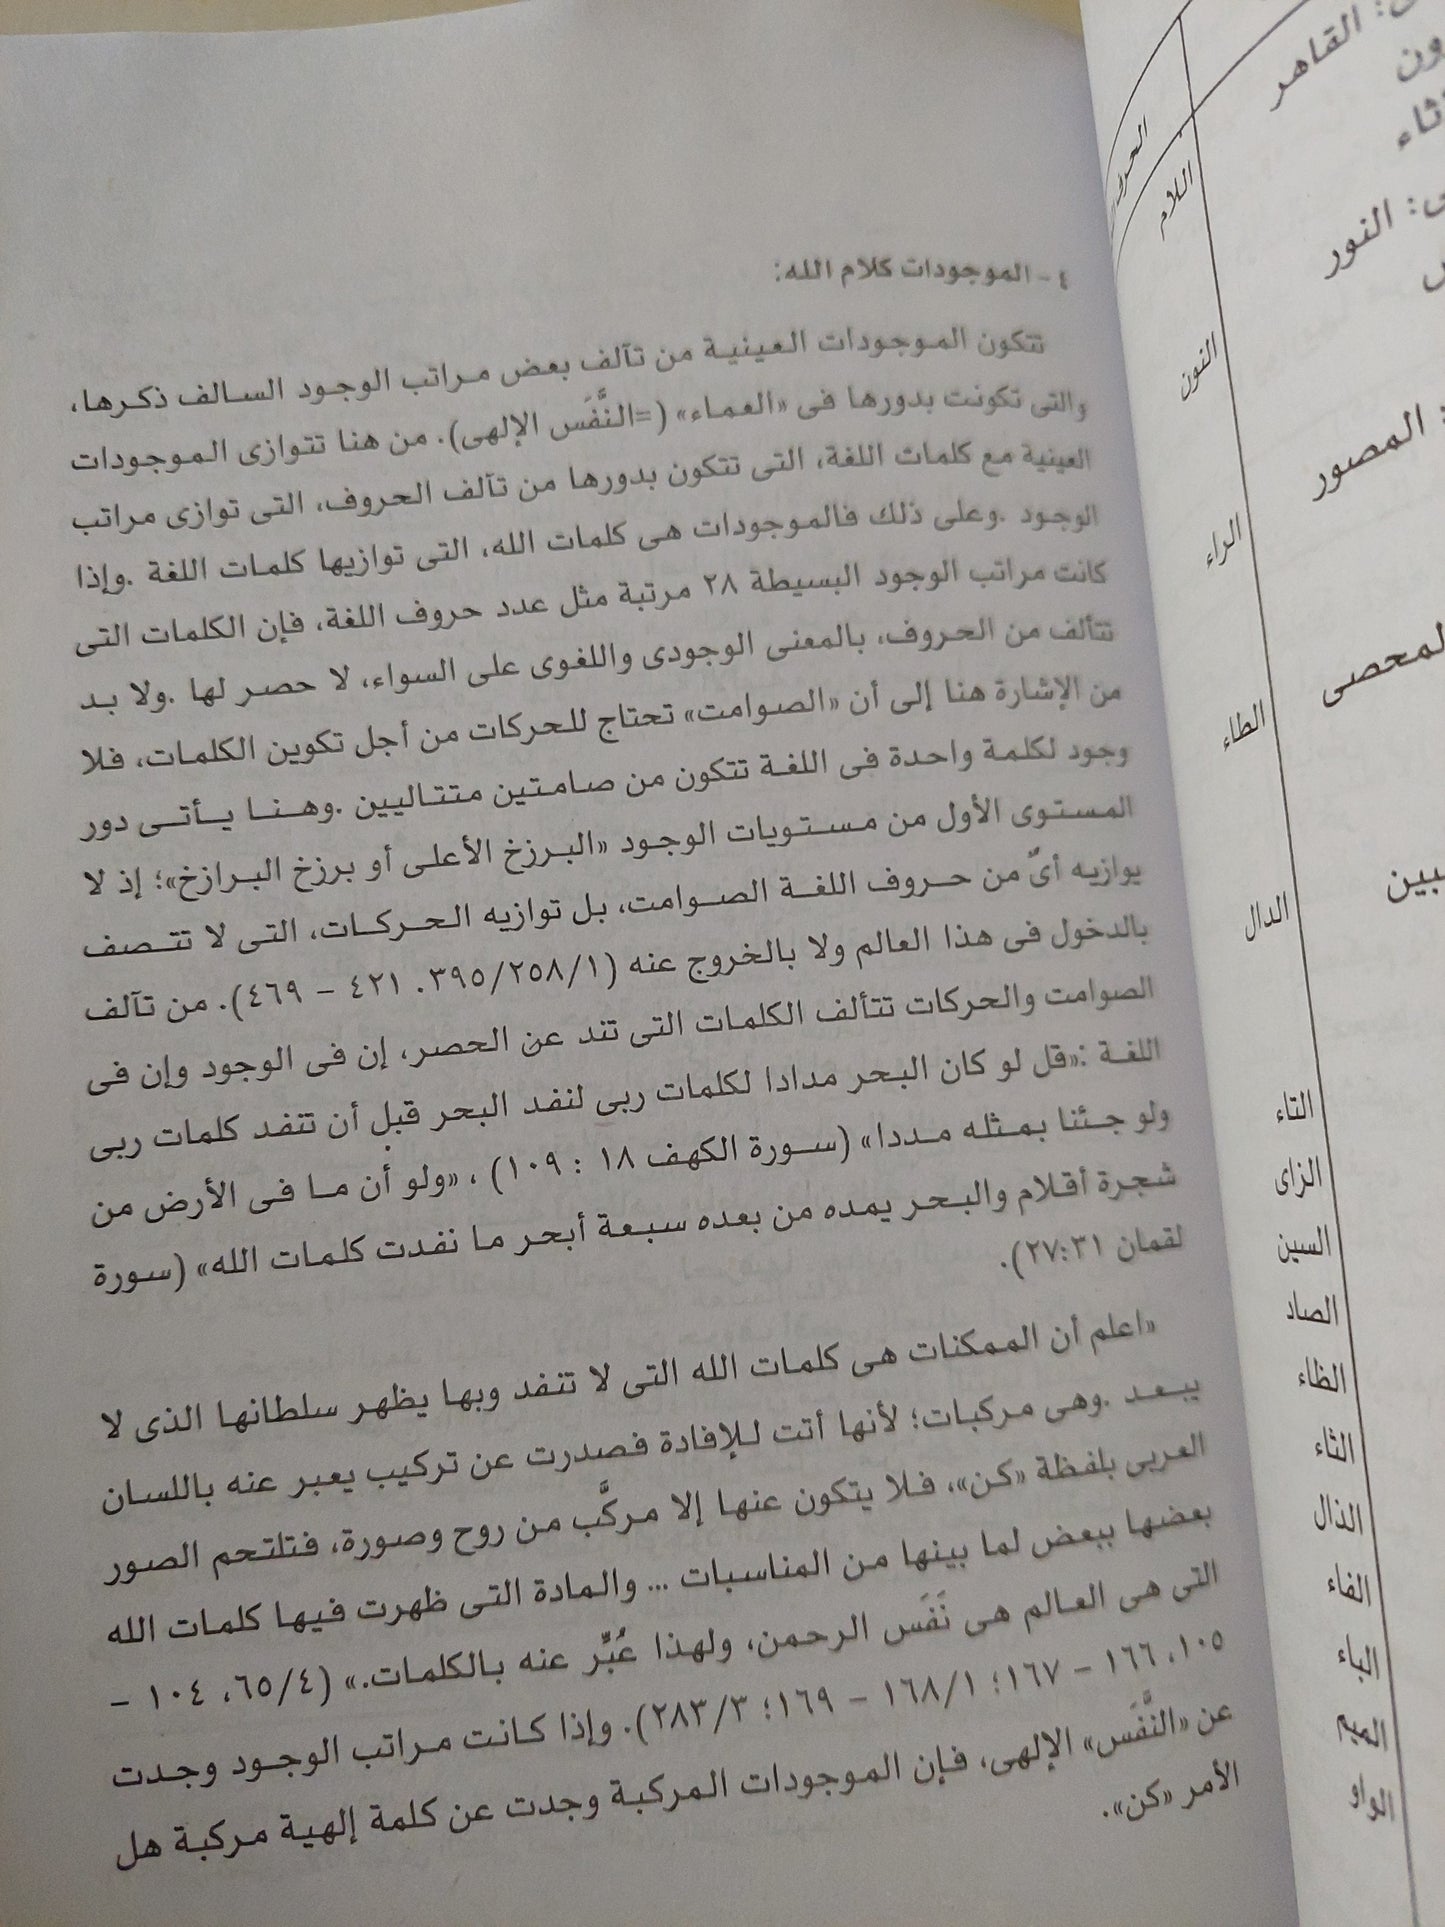 ٤ - الموجودات كلام الله:
تتكون الموجودات العينية من تآلف بعض مراتب الوجود السالف ذكرها،
والتى تكونت بدورها فى «العماء» (=النَّفَس الإلهى). من هنا تتوازى الموجودات
العينية مع كلمات اللغة، التى تتكون بدورها من تآلف الحروف، التى توازى مراتب
الوجود .وعلى ذلك فالموجودات هى كلمات الله، التى توازيها كلمات اللغة .وإذا
كانت مراتب الوجود البسيطة ٢٨ مرتبة مثل عدد حروف اللغة، فإن الكلمات التى
تتألف من الحروف، بالمعنى الوجودى واللغوى على السواء، لا حصر لها .ولا بد
من الإشارة هنا إلى أن «الصوامت» تحتاج للحركات من أجل تكوين الكلمات، فلا
وجود لكلمة واحدة فى اللغة تتكون من صامتين متتاليين .وهنا يأتى دور
المستوى الأول من مستويات الوجود «البرزخ الأعلى أو برزخ البرازخ»؛ إذ لا
يوازيه أىٌ من حروف اللغة الصوامت، بل توازيه الحركات، التى لا تتصف
بالدخول فى هذا العالم ولا بالخروج عنه (٣٩٥/٢٥٨/١. ٤٢١ – ٤٦٩). من تآلف
الصوامت والحركات تتألف الكلمات التى تند عن الحصر، إن فى الوجود وإن فى
اللغة :«قل لو كان البحر مدادا لكلمات ربى لنفد البحر قبل أن تنفد كلمات ربى
ولو جئنا بمثله مددا» (سورة الكهف ١٨ : ١٠٩) ، «ولو أن ما فى الأرض من
شجرة أقلام والبحر يمده من بعده سبعة أبحر ما نفدت كلمات الله» (سورة
لقمان ٢٧:٣١).
«اعلم أن الممكنات هى كلمات الله التى لا تنفد وبها يظهر سلطانها الذى لا
يبعد .وهى مركبات؛ لأنها أتت للإفادة فصدرت عن تركيب يعبر عنه باللسان
العربى بلفظة «كن»، فلا يتكون عنها إلا مركَّب من روح وصورة، فتلتحم الصور
بعضها ببعض لما بينها من المناسبات ... والمادة التى ظهرت فيها كلمات الله
التى هى العالم هى نَفَس الرحمن، ولهذا عُبِّر عنه بالكلمات.» (٦٥/٤، ١٠٤ –
١٠٥، ١٦٦ – ١٦٧؛ ١٦٨/١ – ١٦٩؛ ٢٨٣/٣). وإذا كانت مراتب الوجود وجدت
عن «النَّفَس» الإلهى، فإن الموجودات المركبة وجدت عن كلمة إلهية مركبة هل
الأمر «كن».
القاهر
اللام
النور
النون
المصور
الراء
المحصى
الطاء
الدال
التاء
الزاى
السين
الصاد
الظاء
الثاء
الذال
الفاء
الباء
الميم
الواو